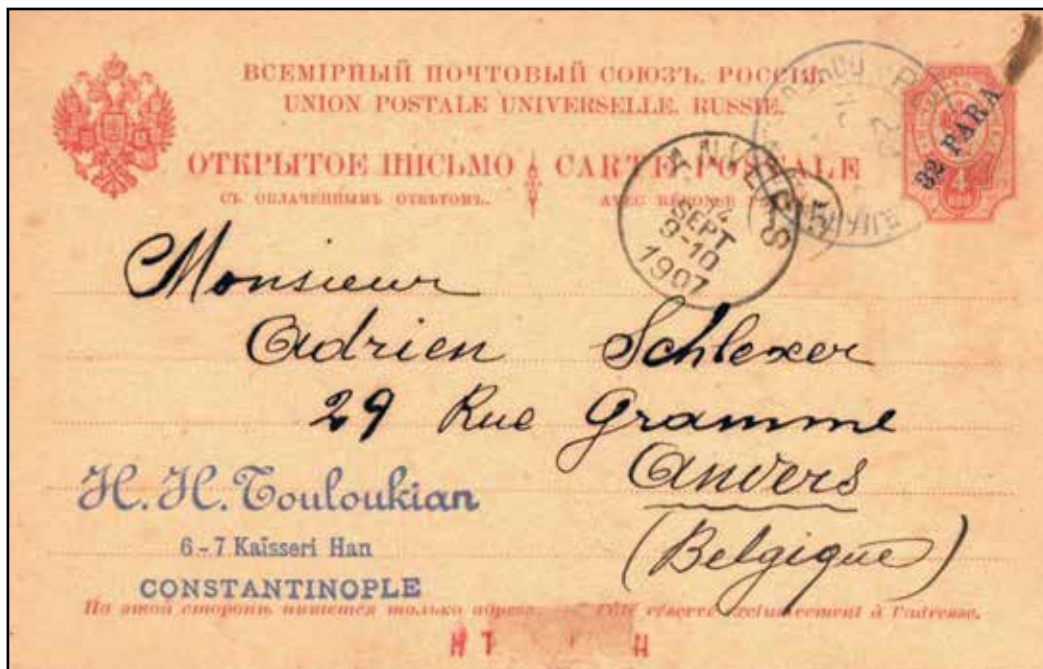 ВСЕМІРНЫЙ ПОЧТОВЫЙ СОЮЗЪ. РОССІЯ.
UNION POSTALE UNIVERSELLE. RUSSIE.
ОТКРЫТОЕ ПИСЬМО
CARTE POSTALE
СЪ ОПЛАЧЕННЫМЪ ОТВѢТОМЪ.
AVEC RÉPONSE
32 PARA
4
ANVERS
SEPT
9-10
1907
5
Monsieur
Adrien Schlexer
29 Rue Gramme
Anvers
(Belgique)
H. H. Touloukian
6-7 Kaïsseri Han
CONSTANTINOPLE
На этой сторонѣ пишется только адресъ. — Côté réservé exclusivement à l'adresse.